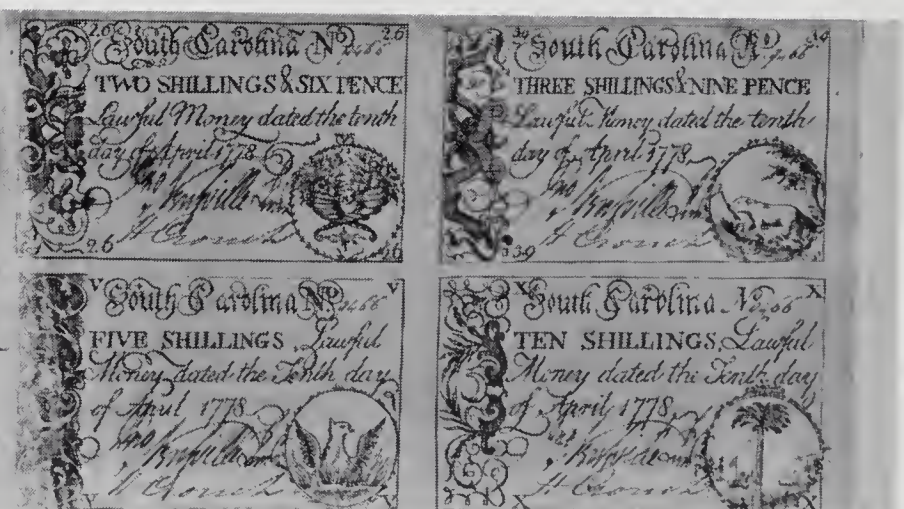 2.6 2.6
South Carolina No
TWO SHILLINGS & SIX PENCE
Lawful Money dated the tenth
day of April 1778
H Crouch
2.6
3.9
South Carolina No
THREE SHILLINGS & NINE PENCE
Lawful Money dated the tenth
day of April 1778
H Crouch
3.9
V V
South Carolina No
FIVE SHILLINGS Lawful
Money dated the Tenth day
of April 1778
H Crouch
V V
X X
South Carolina No
TEN SHILLINGS, Lawful
Money dated the Tenth day
of April, 1778,
H Crouch
X X